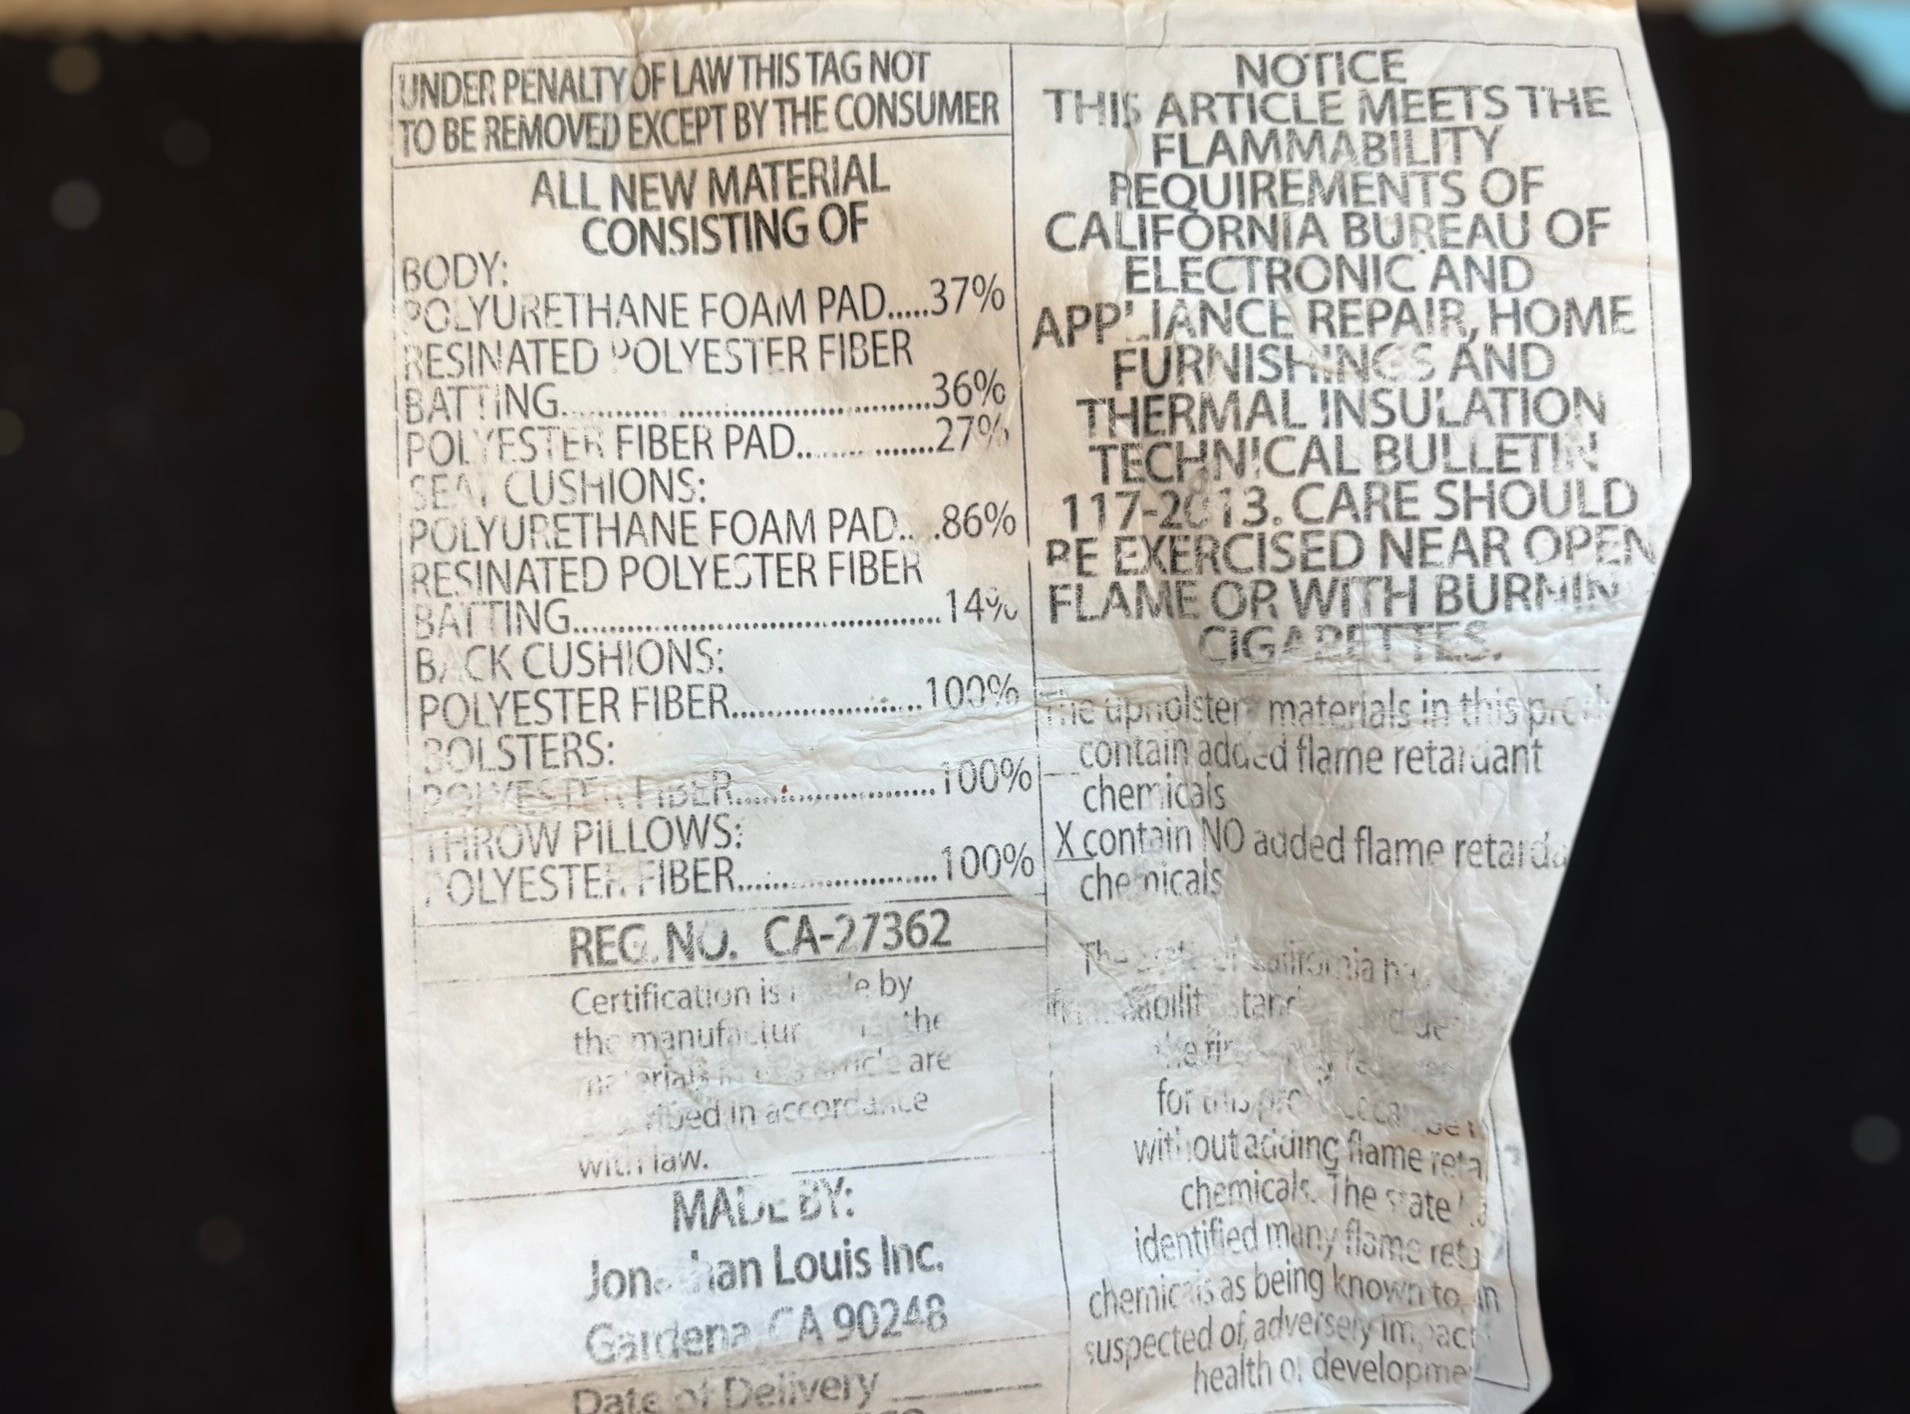 UNDER PENALTY OF LAW THIS TAG NOT
TO BE REMOVED EXCEPT BY THE CONSUMER
ALL NEW MATERIAL
CONSISTING OF
BODY:
POLYURETHANE FOAM PAD.....37%
RESINATED POLYESTER FIBER
BATTING......................................36%
POLYESTER FIBER PAD...............27%
SEAT CUSHIONS:
POLYURETHANE FOAM PAD.....86%
RESINATED POLYESTER FIBER
BATTING......................................14%
BACK CUSHIONS:
POLYESTER FIBER......................100%
BOLSTERS:
POLYESTER FIBER......................100%
THROW PILLOWS:
POLYESTER FIBER......................100%
REG. NO. CA-27362
Certification is made by
the manufacturer the
materials in this article are
described in accordance
with law.
MADE BY:
Jonathan Louis Inc.
Gardena, CA 90248
Date of Delivery
NOTICE
THIS ARTICLE MEETS THE
FLAMMABILITY
REQUIREMENTS OF
CALIFORNIA BUREAU OF
ELECTRONIC AND
APPLIANCE REPAIR, HOME
FURNISHINGS AND
THERMAL INSULATION
TECHNICAL BULLETIN
117-2013. CARE SHOULD
BE EXERCISED NEAR OPEN
FLAME OR WITH BURNING
CIGARETTES.
The upholstery materials in this
contain added flame retardant
chemicals
X contain NO added flame
chemicals
The state of California
the fire
for this product can be
without adding flame
chemicals. The state
identified many flame
chemicals as being known to,
suspected of, adversely impact
health or